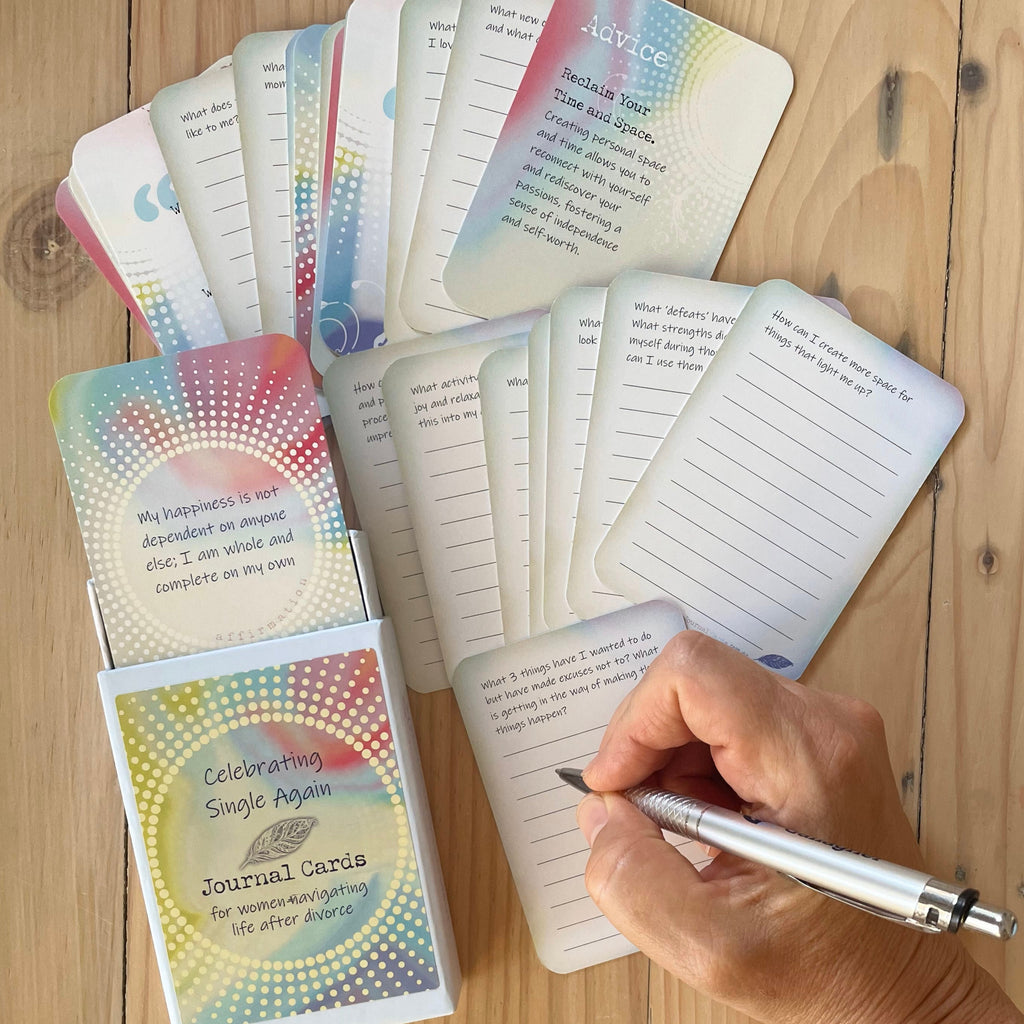 What new
and what
Advice
Reclaim Your
Time and Space.
Creating personal space
and time allows you to
reconnect with yourself
and rediscover your
passions, fostering a
sense of independence
and self-worth.
What
I lov
What
mom
What does
like to me?
“
What 'defeats' have
What strengths di
myself during tho
can I use them
How can I create more space for
things that light me up?
What
look
Wha
What activit
joy and relaxa
this into my
How c
and p
proce
unpre
My happiness is not
dependent on anyone
else; I am whole and
complete on my own
affirmation
What 3 things have I wanted to do
but have made excuses not to? What
is getting in the way of making th
things happen?
Celebrating
Single Again
Journal Cards
for women navigating
life after divorce